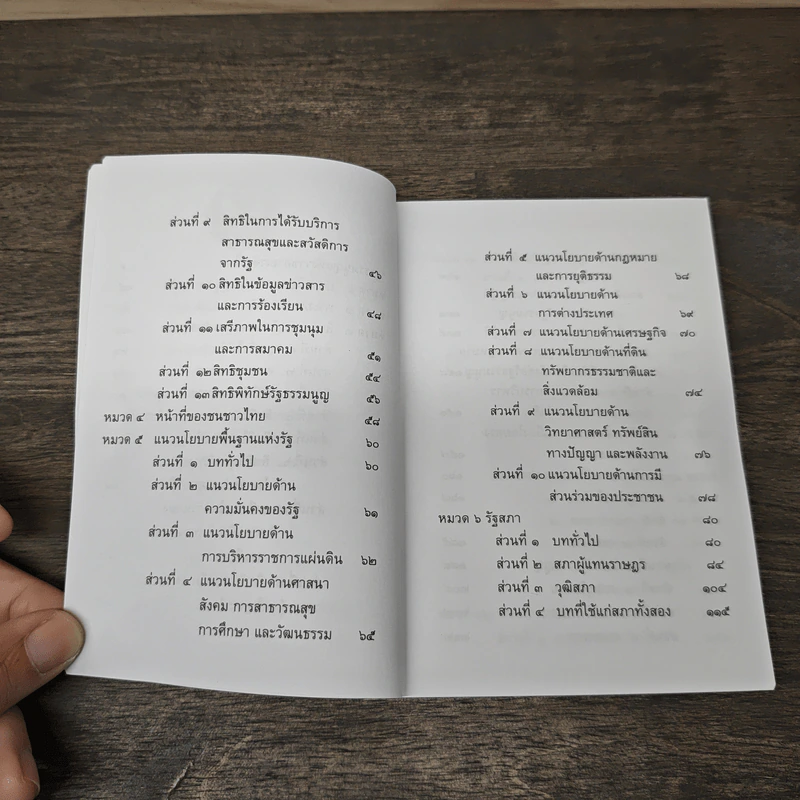 ส่วนที่ ๙ สิทธิในการได้รับบริการ
สาธารณสุขและสวัสดิการ
จากรัฐ ๔๖
ส่วนที่ ๑๐ สิทธิในข้อมูลข่าวสาร
และการร้องเรียน ๔๘
ส่วนที่ ๑๑ เสรีภาพในการชุมนุม
และการสมาคม ๕๑
ส่วนที่ ๑๒ สิทธิชุมชน ๕๔
ส่วนที่ ๑๓ สิทธิพิทักษ์รัฐธรรมนูญ ๕๖
หมวด ๔ หน้าที่ของชนชาวไทย ๕๘
หมวด ๕ แนวนโยบายพื้นฐานแห่งรัฐ ๖๐
ส่วนที่ ๑ บททั่วไป ๖๐
ส่วนที่ ๒ แนวนโยบายด้าน
ความมั่นคงของรัฐ ๖๑
ส่วนที่ ๓ แนวนโยบายด้าน
การบริหารราชการแผ่นดิน ๖๒
ส่วนที่ ๔ แนวนโยบายด้านศาสนา
สังคม การสาธารณสุข
การศึกษา และวัฒนธรรม ๖๕
ส่วนที่ ๕ แนวนโยบายด้านกฎหมาย
และการยุติธรรม ๖๘
ส่วนที่ ๖ แนวนโยบายด้าน
การต่างประเทศ ๖๙
ส่วนที่ ๗ แนวนโยบายด้านเศรษฐกิจ ๗๐
ส่วนที่ ๘ แนวนโยบายด้านที่ดิน
ทรัพยากรธรรมชาติและ
สิ่งแวดล้อม ๗๔
ส่วนที่ ๙ แนวนโยบายด้าน
วิทยาศาสตร์ ทรัพย์สิน
ทางปัญญา และพลังงาน ๗๖
ส่วนที่ ๑๐ แนวนโยบายด้านการมี
ส่วนร่วมของประชาชน ๗๘
หมวด ๖ รัฐสภา ๘๐
ส่วนที่ ๑ บททั่วไป ๘๐
ส่วนที่ ๒ สภาผู้แทนราษฎร ๘๔
ส่วนที่ ๓ วุฒิสภา ๑๐๔
ส่วนที่ ๔ บทที่ใช้แก่สภาทั้งสอง ๑๑๕